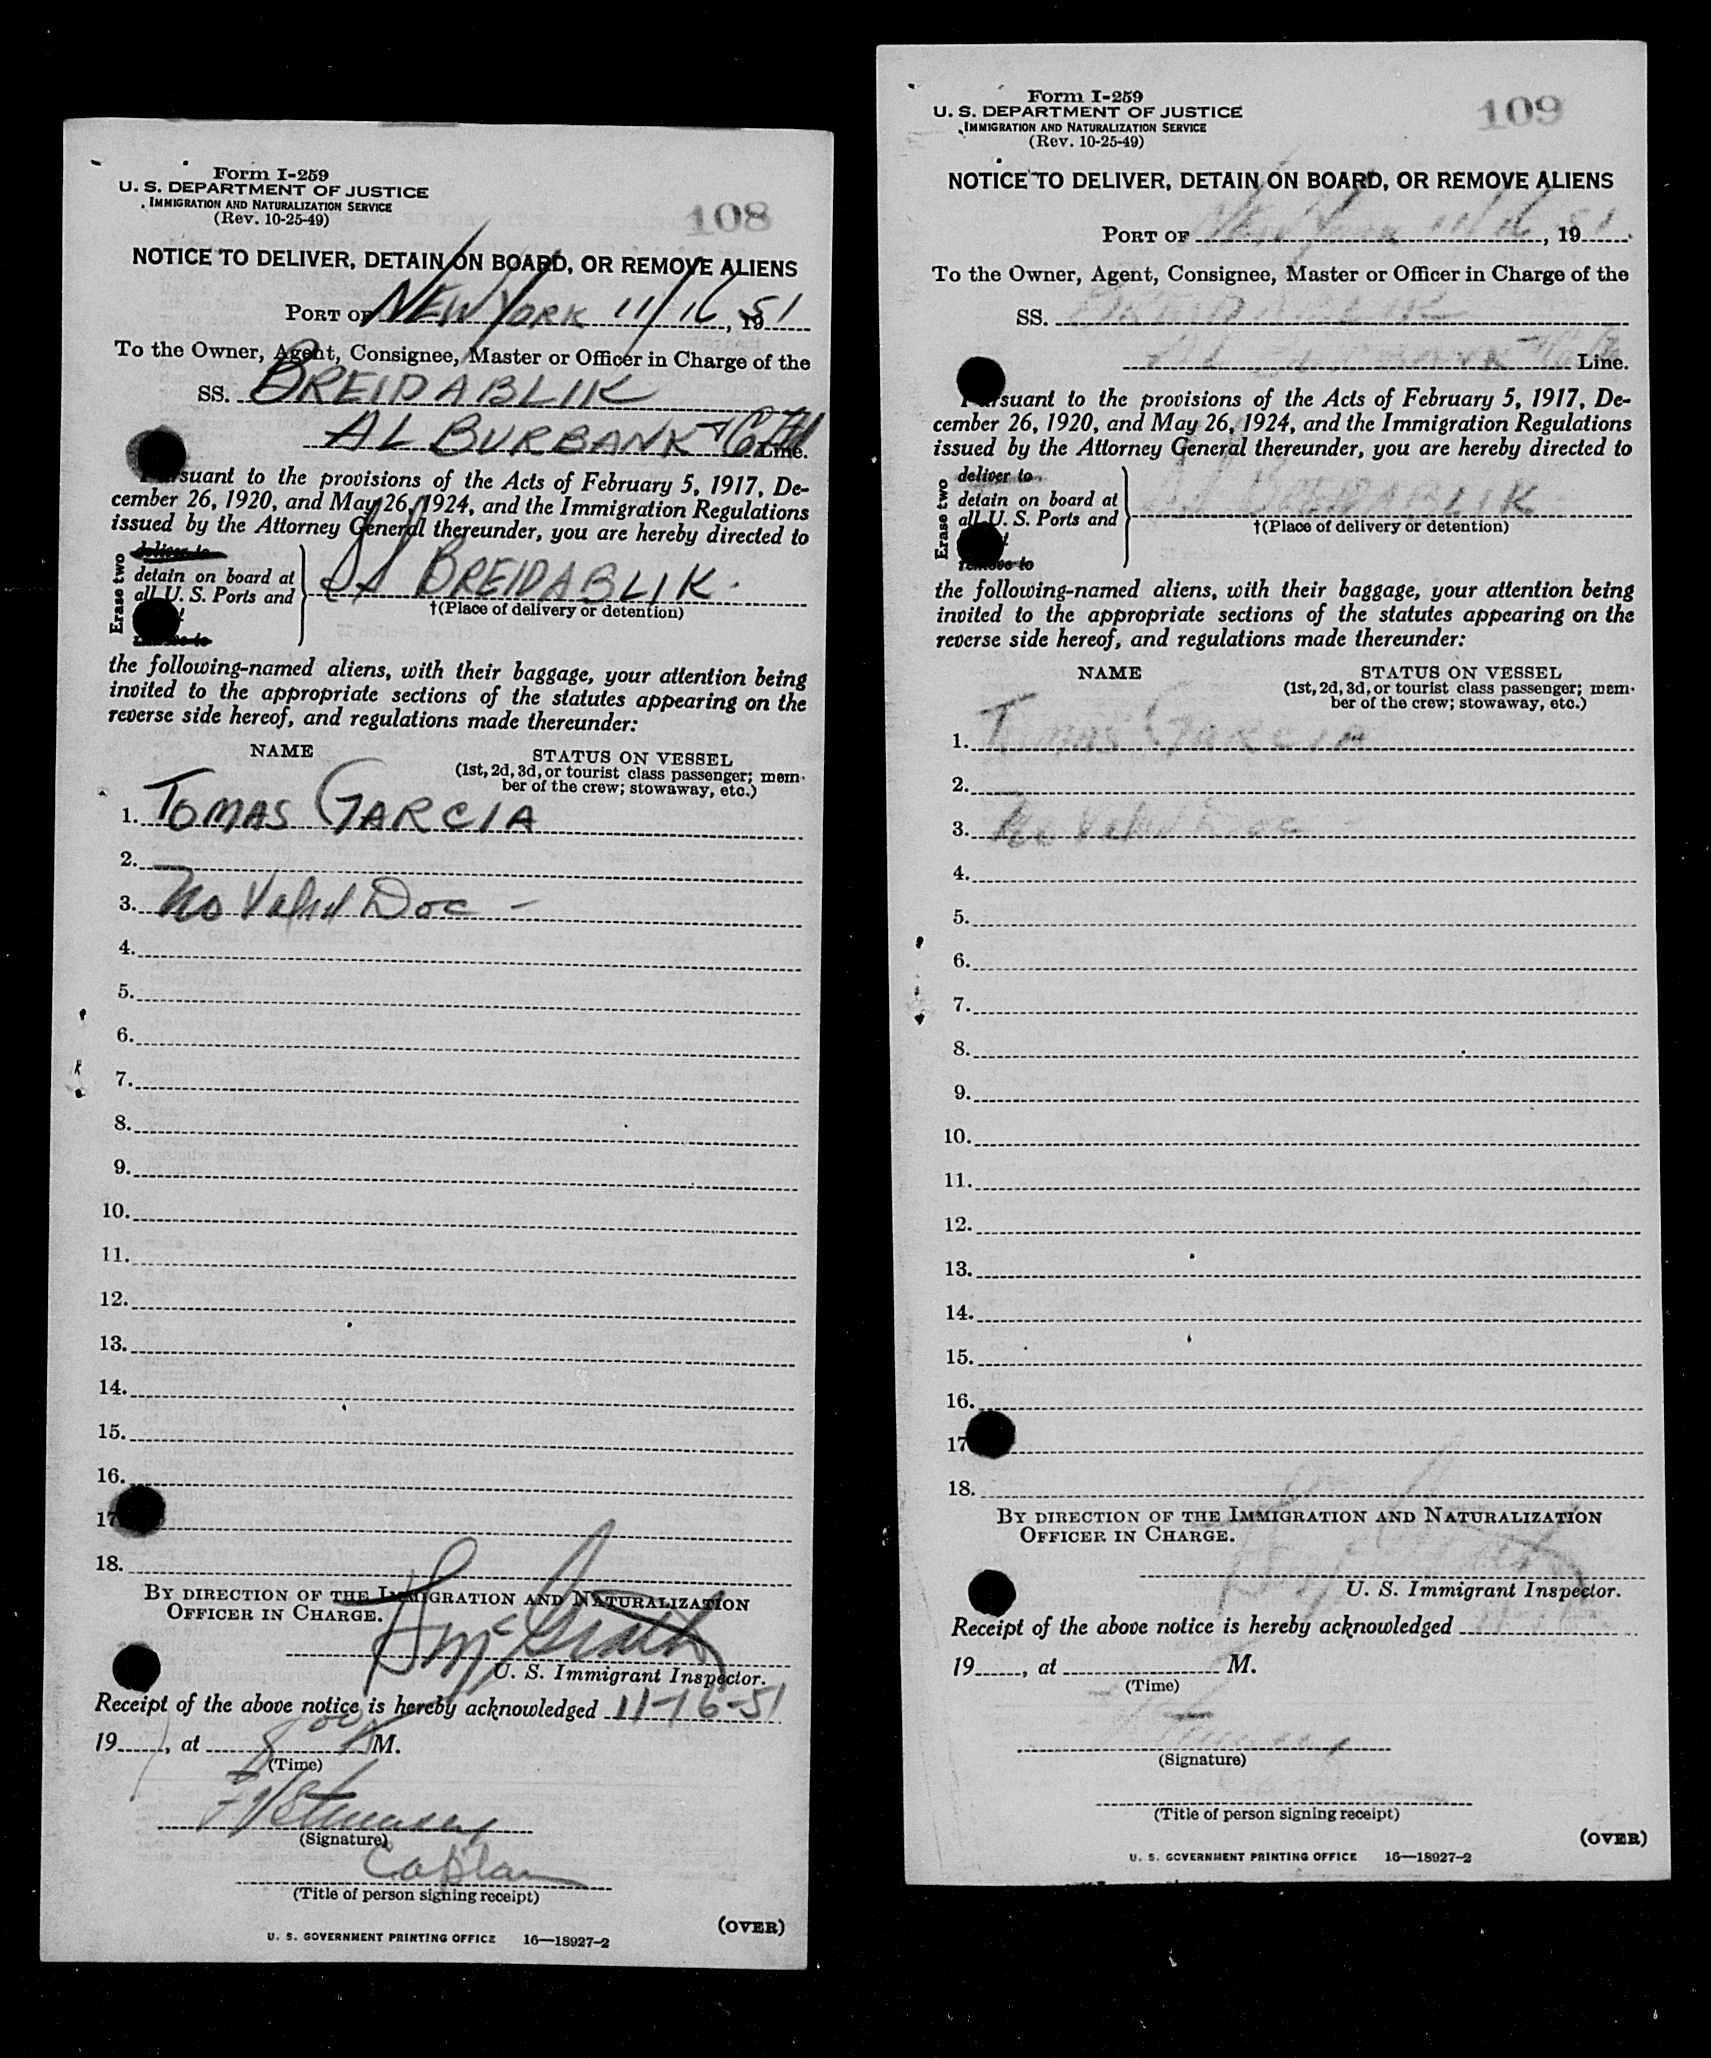 Form I-259
U. S. DEPARTMENT OF JUSTICE
IMMIGRATION AND NATURALIZATION SERVICE
(Rev. 10-25-49)
108
NOTICE TO DELIVER, DETAIN ON BOARD, OR REMOVE ALIENS
PORT OF NEW YORK 11/16, 1951
To the Owner, Agent, Consignee, Master or Officer in Charge of the
SS. BREIDABLIK
AL BURBANK & Co Ltd Line.
Pursuant to the provisions of the Acts of February 5, 1917, De-
cember 26, 1920, and May 26, 1924, and the Immigration Regulations
issued by the Attorney General thereunder, you are hereby directed to
Erase two
deliver to
detain on board at
all U. S. Ports and
remove to
SS BREIDABLIK.
†(Place of delivery or detention)
the following-named aliens, with their baggage, your attention being
invited to the appropriate sections of the statutes appearing on the
reverse side hereof, and regulations made thereunder:
NAME
STATUS ON VESSEL
(1st, 2d, 3d, or tourist class passenger; mem-
ber of the crew; stowaway, etc.)
1. TOMAS GARCIA
2.
3. No Valid Doc -
4.
5.
6.
7.
8.
9.
10.
11.
12.
13.
14.
15.
16.
17
18.
BY DIRECTION OF THE IMMIGRATION AND NATURALIZATION
OFFICER IN CHARGE.
McGrath
U. S. Immigrant Inspector.
Receipt of the above notice is hereby acknowledged 11-16-51
19, at 8 00 A M.
(Time)
(Signature)
(Title of person signing receipt)
(OVER)
U. S. GOVERNMENT PRINTING OFFICE 16—18927-2
Form I-259
U. S. DEPARTMENT OF JUSTICE
IMMIGRATION AND NATURALIZATION SERVICE
(Rev. 10-25-49)
109
NOTICE TO DELIVER, DETAIN ON BOARD, OR REMOVE ALIENS
PORT OF New York 11/16, 1951
To the Owner, Agent, Consignee, Master or Officer in Charge of the
SS. BREIDABLIK
AL BURBANK & Co Line.
Pursuant to the provisions of the Acts of February 5, 1917, De-
cember 26, 1920, and May 26, 1924, and the Immigration Regulations
issued by the Attorney General thereunder, you are hereby directed to
Erase two
deliver to
detain on board at
all U. S. Ports and
remove to
SS BREIDABLIK
†(Place of delivery or detention)
the following-named aliens, with their baggage, your attention being
invited to the appropriate sections of the statutes appearing on the
reverse side hereof, and regulations made thereunder:
NAME
STATUS ON VESSEL
(1st, 2d, 3d, or tourist class passenger; mem-
ber of the crew; stowaway, etc.)
1. TOMAS GARCIA
2.
3. No Valid Doc -
4.
5.
6.
7.
8.
9.
10.
11.
12.
13.
14.
15.
16.
17
18.
BY DIRECTION OF THE IMMIGRATION AND NATURALIZATION
OFFICER IN CHARGE.
U. S. Immigrant Inspector.
Receipt of the above notice is hereby acknowledged
19, at M.
(Time)
(Signature)
(Title of person signing receipt)
(OVER)
U. S. GOVERNMENT PRINTING OFFICE 16—18927-2